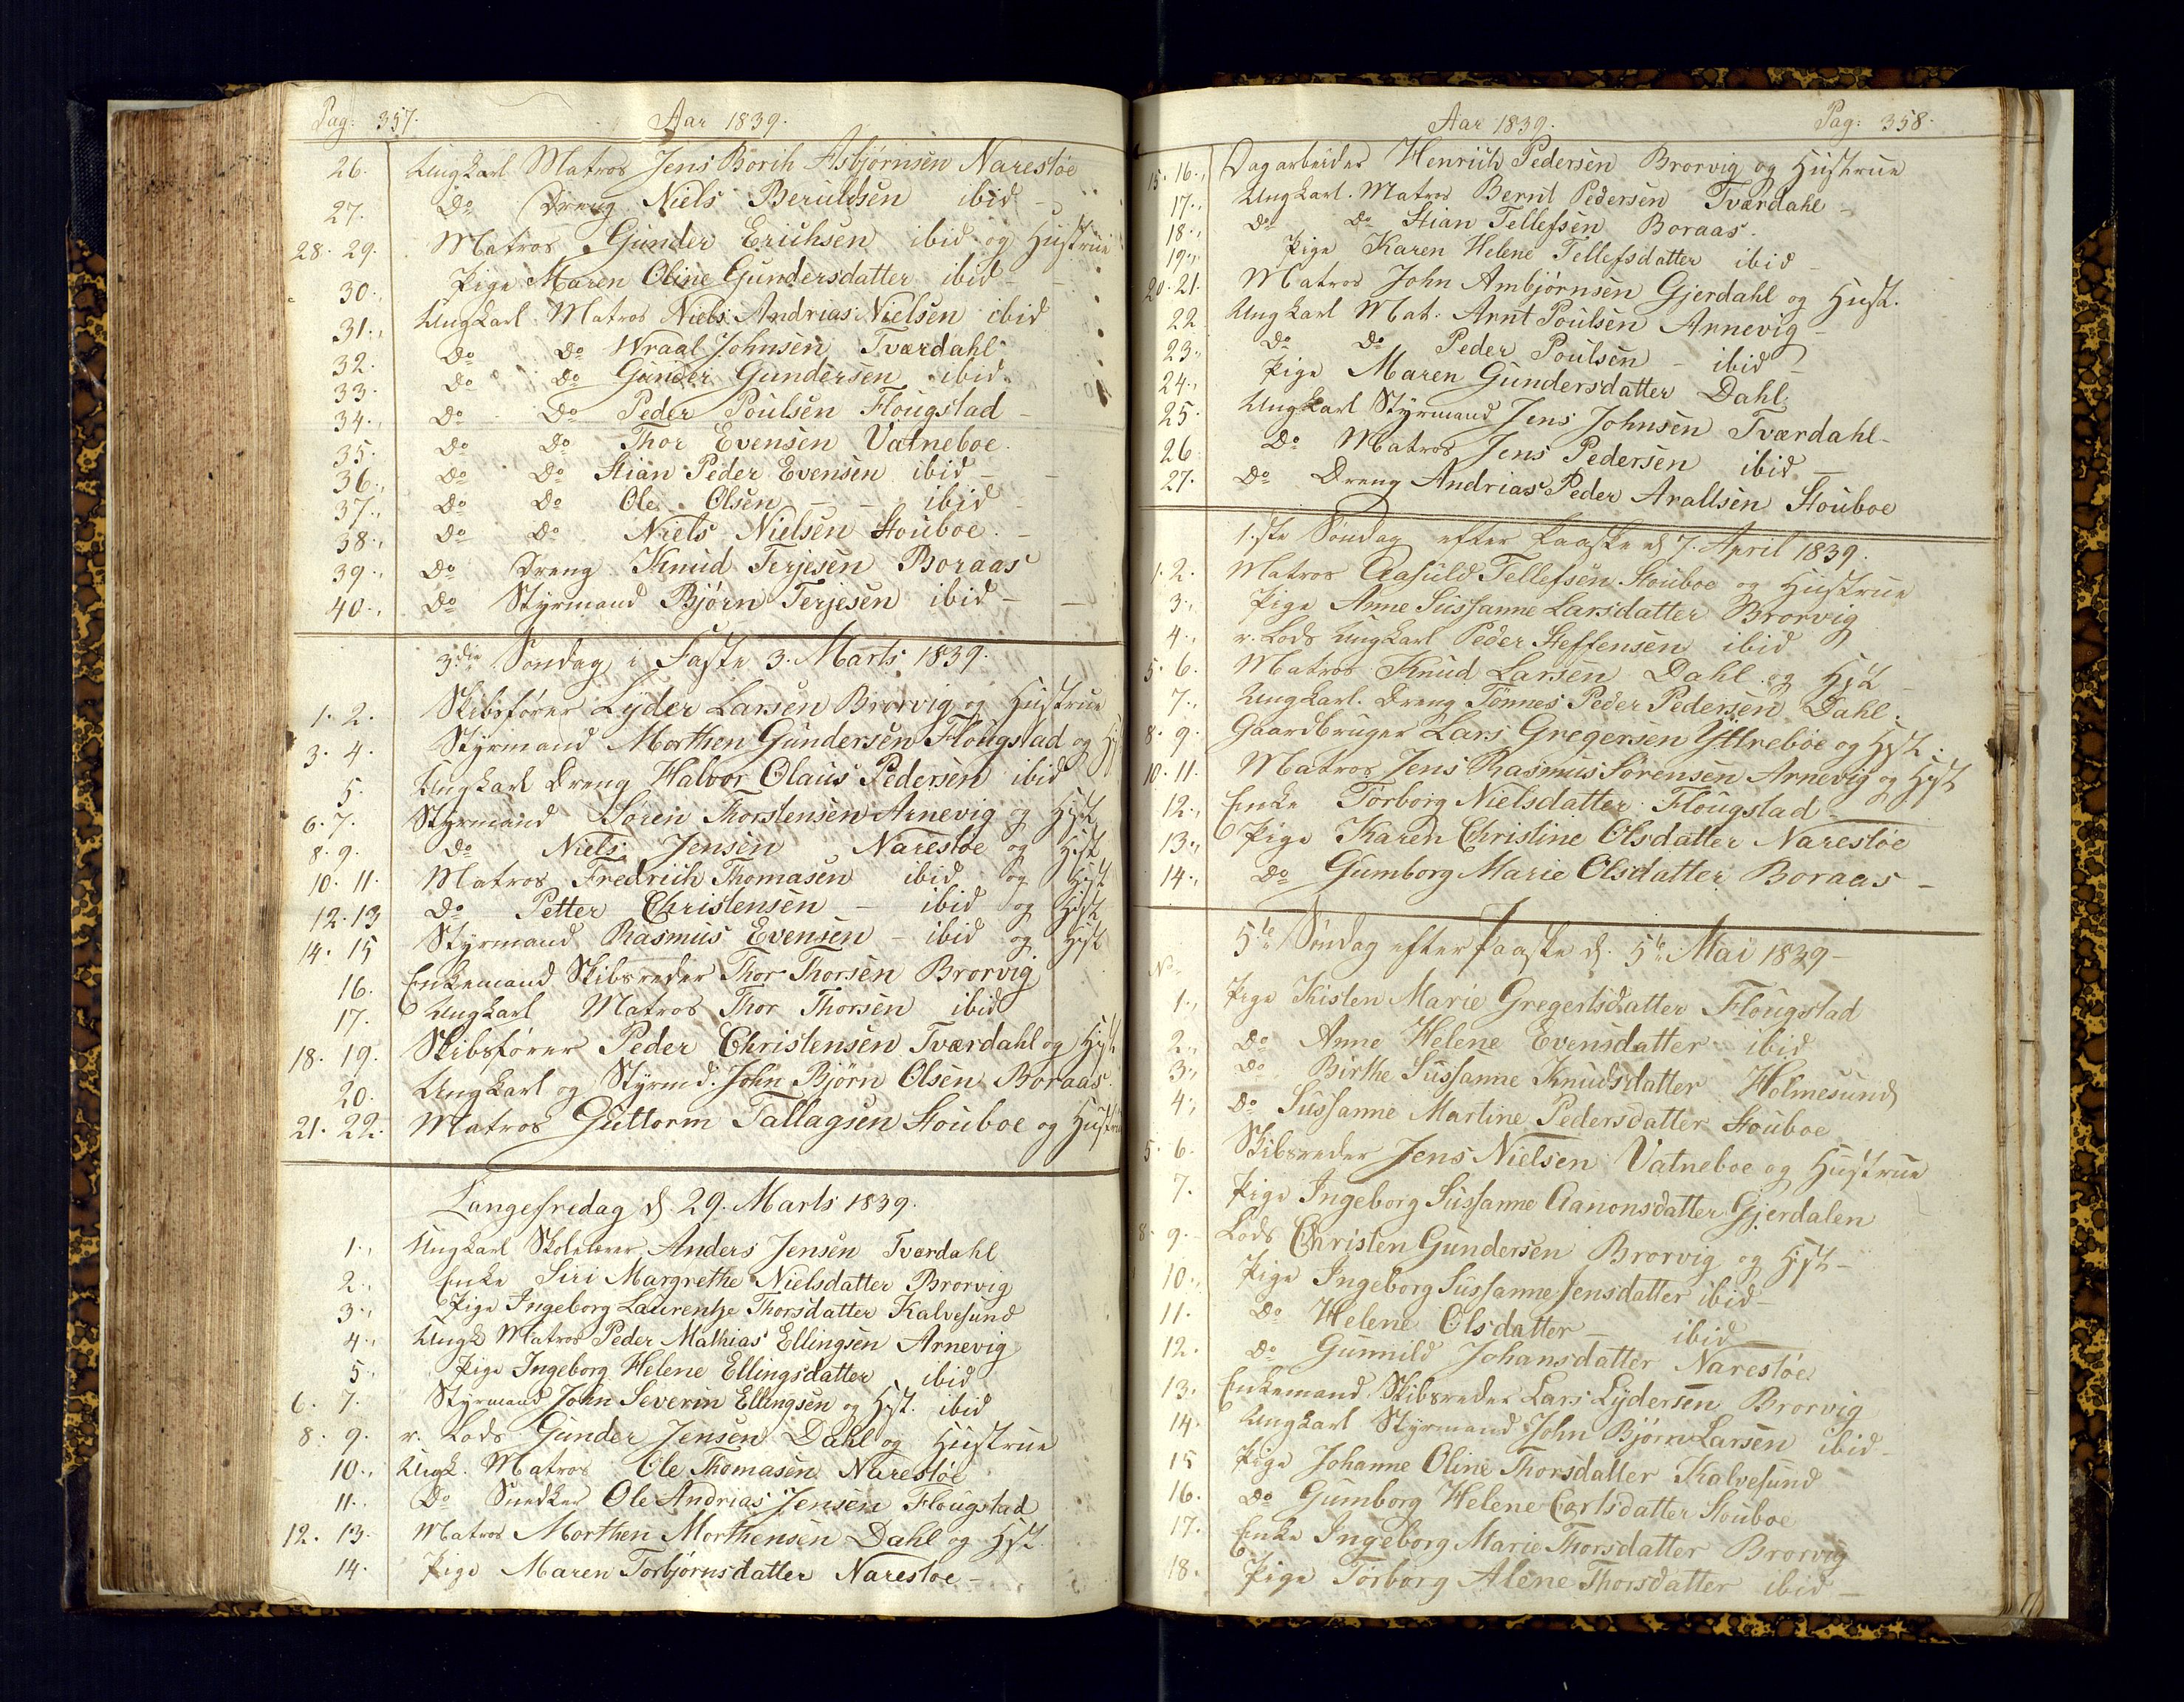 Pag: 357. Aar 1839.
26. Ungkarl Matros Jens Borih Asbjørnsen Narestøe
27. Do Dreng Niels Beruldsen ibid -
28. 29. Matros Gunder Erichsen ibid og Hustrue
30., Pige Maren Oline Gundersdatter ibid -
31., Ungkarl Matros Niels Andrias Nielsen ibid
32. Do Do Wraal Johnsen Tværdahl
33. Do Do Gunder Gundersen ibid.
34., Do Do Peder Poulsen Flougstad -
35. Do Do Thor Evensen Vatneboe.
36., Do Do Stian Peder Evensen ibid -
37., Do Do Ole Olsen - ibid
38., Do Do Niels Nielsen Stouboe. -
39., Do Dreng Knud Terjesen Boraas
40., Do Styrmand Bjørn Terjesen ibid -
3die Søndag i Faste 3. Marts 1839.
1. 2. Skibsfører Lyder Larsen Brorvig og Hustrue
3. 4. Styrmand Morthen Gundersen Flougstad og
5. Ungkarl Dreng Halvor Olaus Pedersen ibid
6. 7. Styrmand Søren Thorstensen Arnevig og Hst
8. 9. Do Niels Jensen Narestøe og Hst
10. 11. Matros Fredrich Thomasen ibid og Hst
12. 13 Do Petter Christensen - ibid og Hst
14. 15 Styrmand Rasmus Evensen - ibid og Hst
16. Enkemand Skibsreder Thor Thorsen Brorvig
17. Ungkarl Matros Thor Thorsen ibid
18. 19. Skibsfører Peder Christensen Tværdahl og Hst
20. Ungkarl og Styrmd. John Bjørn Olsen Boraas.
21. 22. Matros Guttorm Tallagsen Stouboe og Hustrue
Langefredag d. 29. Marts 1839.
1., Ungkarl Skolelærer Anders Jensen Tværdahl
2., Enke Siri Margrethe Nielsdatter Brorvig
3., Pige Ingeborg Laurentze Thorsdatter Kalvesund
4., Ungk Matros Peder Mathias Ellingsen Arnevig
5., Pige Ingeborg Helene Ellingsdatter ibid
6. 7. Styrmand John Severin Ellingsen og Hst. ibid
8. 9. r. Lods Gunder Jensen Dahl og Hustrue
10., Ungk. Matros Ole Thomasen Narestøe
11., Do Snedker Ole Andrias Jensen Flougstad
12. 13. Matros Morthen Morthensen Dahl og Hst.
14. Pige Maren Torbjørnsdatter Narestøe -
Aar 1839. Pag: 358.
15. 16., Dagarbeider Henrich Pedersen Brorvig og Hustrue
17., Ungkarl. Matros Bernt Pedersen Tværdahl -
18., Do Do Stian Tellefsen Boraas.
19., Pige Karen Helene Tellefsdatter ibid -
20. 21. Matros John Ambjørnsen Gjerdahl og Hust.
22 Ungkarl Mat. Arnt Poulsen Arnevig -
23., Do Do Peder Poulsen - ibid -
24., Pige Maren Gundersdatter Dahl.
25. Ungkarl Styrmand Jens Johnsen Tværdahl -
26 Do Matros Jens Pedersen ibid -
27. Do Dreng Andrias Peder Arallsen Stouboe
1.ste Søndag efter Paaske d 7. April 1839.
1. 2. Matros Aasuld Tellefsen Stouboe og Hustrue
3., Pige Anne Sussanne Larsdatter Brorvig
4., r. Lods Ungkarl Peder Steffensen ibid
5. 6. Matros Knud Larsen Dahl og Hst -
7., Ungkarl. Dreng Tønnes Peder Pedersen Dahl.
8. 9. Gaardbruger Lars Gregersen Yttreboe og Hst.
10. 11. Matros Jens Rasmus Sørensen Arnevig og Hst
12., Enke Torborg Nielsdatter Flougstad -
13., Pige Karen Christine Olsdatter Narestøe
14., Do Gumborg Marie Olsdatter Boraas -
5te Søndag efter Paaske d. 5te Mai 1839 -
No
1., Pige Kisten Marie Gregertsdatter Flougstad
2., Do Anne Helene Evensdatter ibid
3., Do Birthe Sussanne Knudsdatter Holmesund
4., Do Sussanne Martine Pedersdatter Stouboe
5. 6. Skibsreder Jens Nielsen Vatneboe og Hustrue
7. Pige Ingeborg Sussanne Aanonsdatter Gjerdalen
8. 9. Lods Christen Gundersen Brorvig og Hst -
10., Pige Ingeborg Sussanne Jensdatter ibid -
11. Do Helene Olsdatter - ibid -
12. Do Gunnild Johansdatter Narestøe
13. Enkemand Skibsreder Lars Lydersen Brorvig
14. Ungkarl Styrmand John Bjørn Larsen ibid -
15 Pige Johanne Oline Thorsdatter Kalvesund
16. Do Gumborg Helene Carlsdatter Stouboe
17. Enke Ingeborg Marie Thorsdatter Brorvig
18. Pige Torborg Alene Thorsdatter ibid -